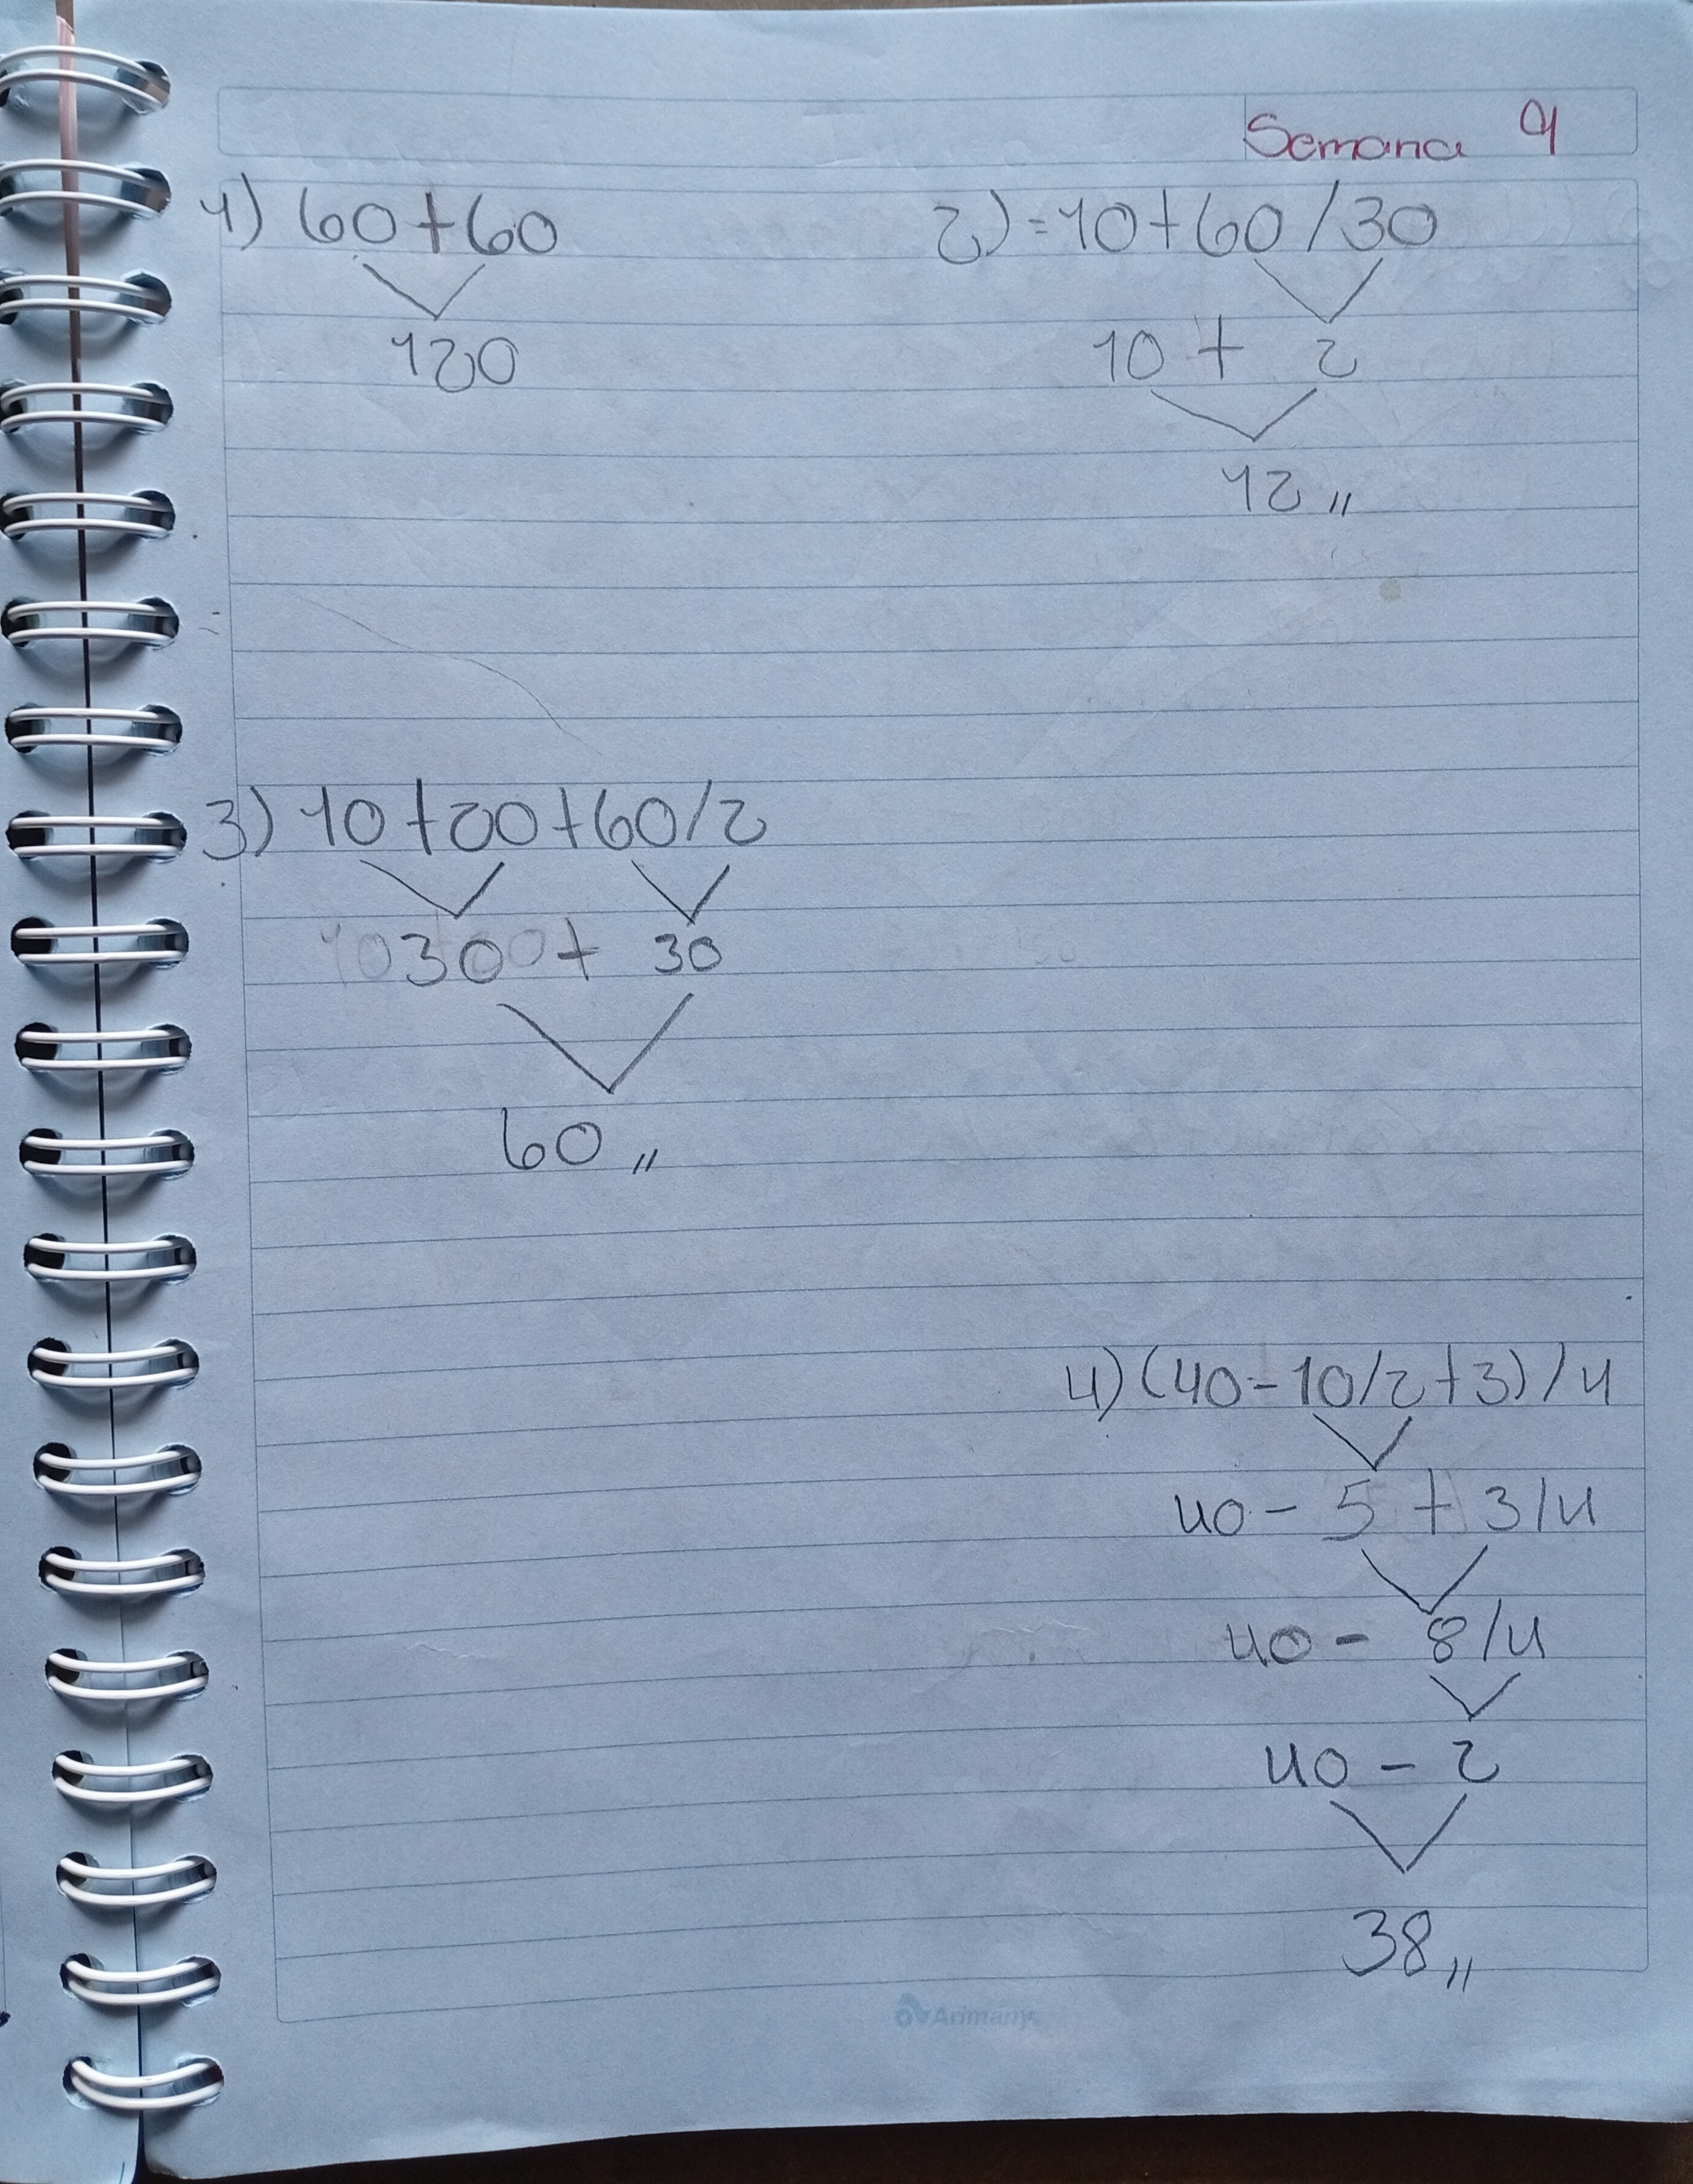 Semana 9
1) 60+60
120
2) =10+60/30
10 + 2
12 ,,
3) 10+20+60/2
30 + 30
60 ,,
4) (40-10/2+3)/4
40 - 5 + 3/4
40 - 8/4
40 - 2
38 ,,
Arimany